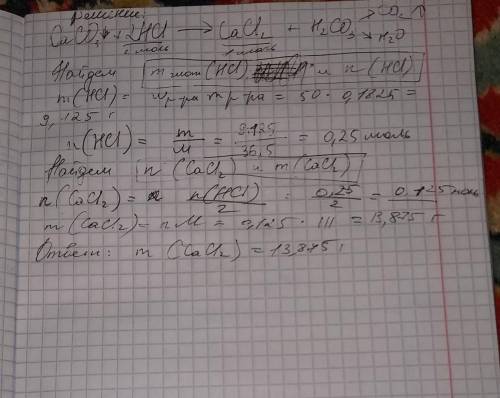 Решение:
CaCO₃ + 2HCl → CaCl₂ + H₂CO₃ → CO₂↑ → H₂O
2 моль 1 моль
Найдем m (HCl), и n (HCl)
m(HCl) = wр-ра mр-ра = 50 · 0,1825 =
9,125 г
n(HCl) = m/M = 9.125/36,5 = 0,25 моль
Найдем n (CaCl₂) и m(CaCl₂)
n(CaCl₂) = n(HCl)/2 = 0,25/2 = 0.125 моль
m(CaCl₂) = n M = 0,125 · 111 = 13,875 г
Ответ: m (CaCl₂) = 13,875 г